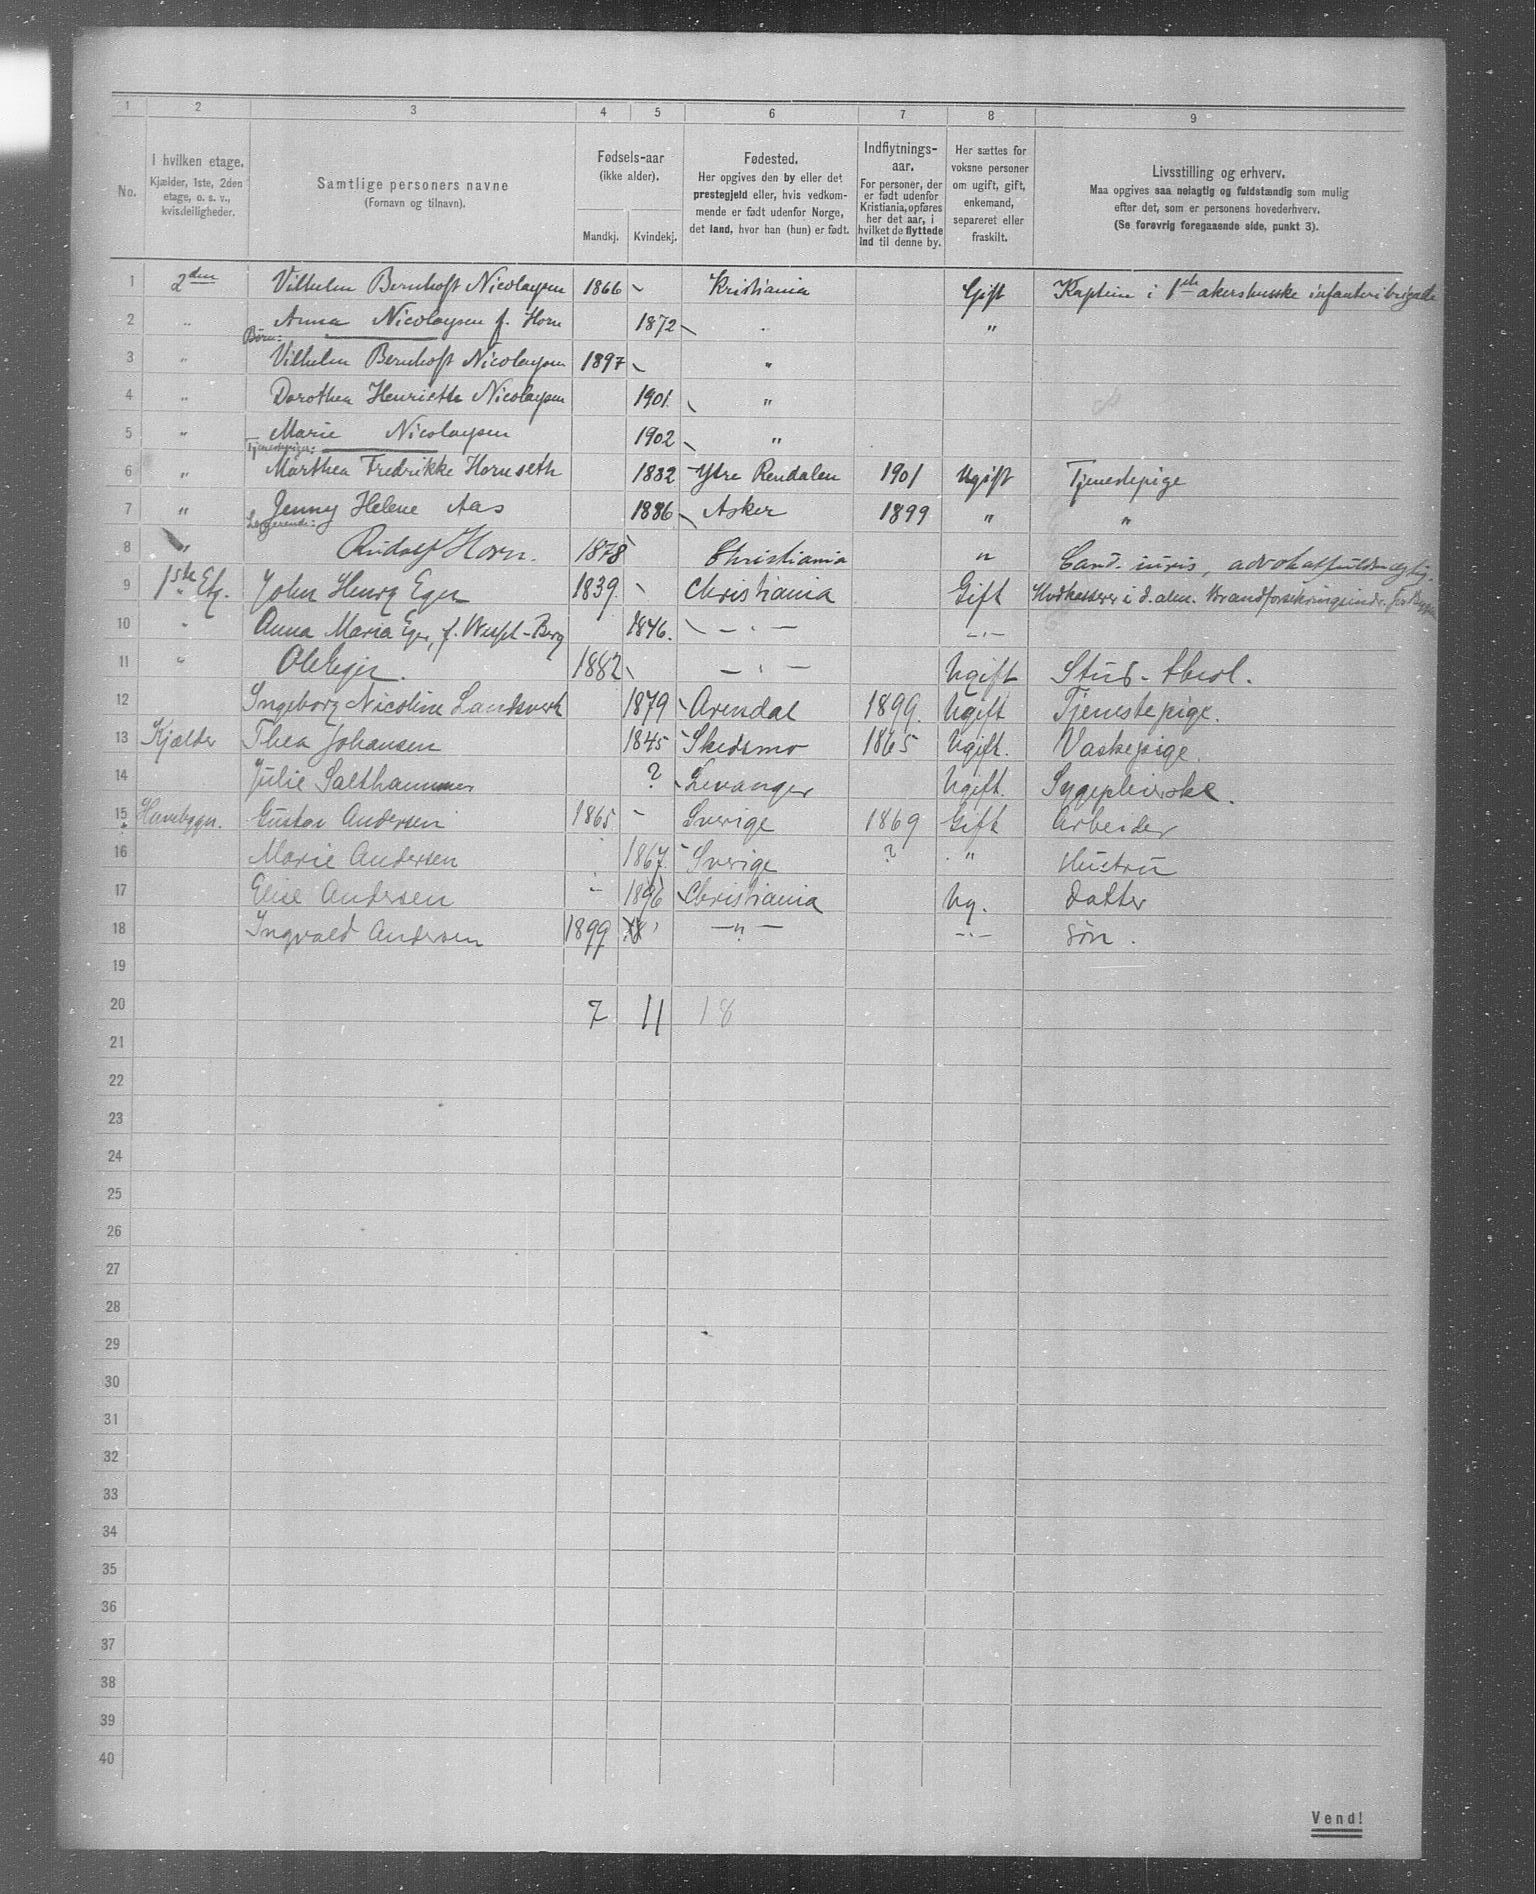 1 2 3 4 5 6 7 8 9
No.
I hvilken etage.
Kjælder, 1ste, 2den
etage, o. s. v.,
kvisdeiligheder.
Samtlige personers navne
(Fornavn og tilnavn).
Fødsels-aar
(ikke alder).
Mandkj. Kvindekj.
Fødested.
Her opgives den by eller det
prestegjeld eller, hvis vedkom-
mende er født udenfor Norge,
det land, hvor han (hun) er født.
Indflytnings-
aar.
For personer, der
er født udenfor
Kristiania, opføres
her det aar, i
hvilket de flyttede
ind til denne by.
Her sættes for
voksne personer
om ugift, gift,
enkemand,
separeret eller
fraskilt.
Livsstilling og erhverv.
Maa opgives saa nøiagtig og fuldstændig som mulig
efter det, som er personens hovederhverv.
(Se forøvrig foregaaende side, punkt 3).
1 2den Vilhelm Bernhoft Nicolaysen 1866 Kristiania Gift Kaptein i 1ste akershuske infanteribrigade
2 " Anna Nicolaysen f. Horn 1872 " "
Børn:
3 " Vilhelm Bernhoft Nicolaysen 1897 "
4 " Dorothea Henriette Nicolaysen 1901 "
5 " Marie Nicolaysen 1902 "
Tjenestepiger:
6 " Marthea Fredrikke Hornseth 1882 Ytre Rendalen 1901 Ugift Tjenestepige
7 " Jenny Helene Aas 1886 Asker 1899 " "
Logerende:
8 " Rudolf Horn. 1878 Christiania " Cand. juris, advokatfuldmægtig.
9 1ste Etg. John Henry Eger 1839 Christiania Gift i d. alm. Brandforsikringsindr.
10 " Anna Maria Eger, f. - Berg 1846. - " - - " -
11 " Ole Eger. 1882 - " - Ugift Stud. theol.
12 Ingeborg Nicoline Landsverk 1879 Arendal 1899. Ugift Tjenestepige.
13 Kjælder Thea Johansen 1845 Skedsmo 1865 Ugift. Vaskepige.
14 Julie Salthammer ? Levanger Ugift. Sygepleierske.
15 Havebygn. Gustav Andersen 1865 Sverige 1869 Gift Arbeider
16 Marie Andersen 1867. Sverige ? " Hustru
17 Elise Andersen 1896 Christiania Ug. Datter
18 Ingvald Andersen 1899 - " - - " - Søn.
19
20 7 11 18
21
22
23
24
25
26
27
28
29
30
31
32
33
34
35
36
37
38
39
40
Vend!